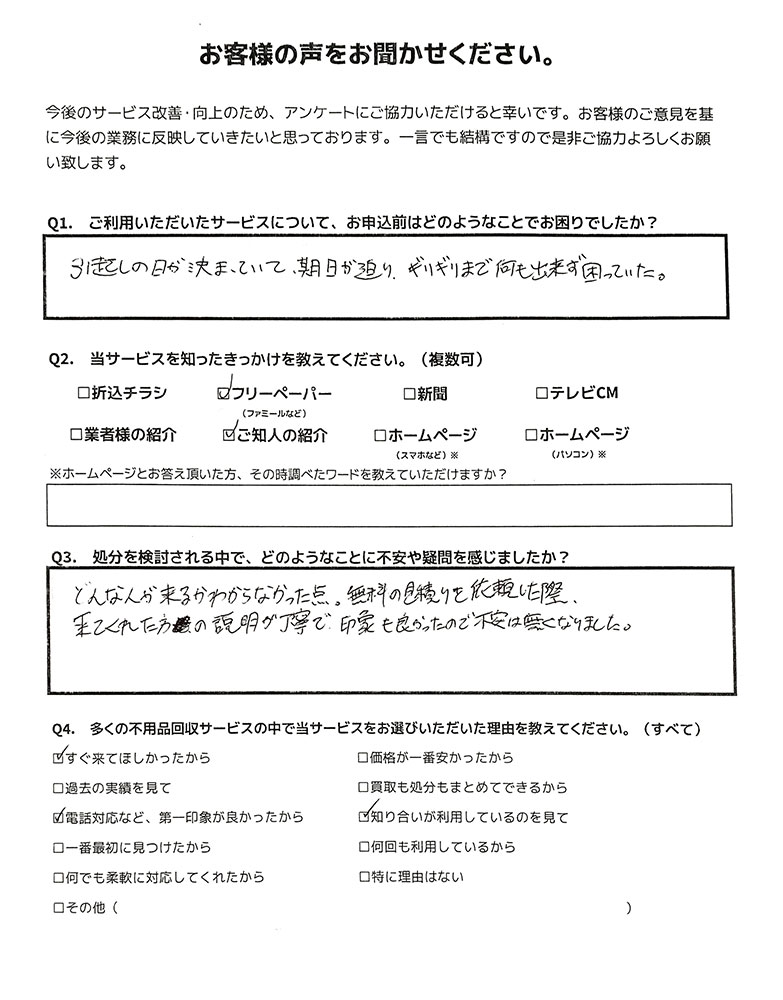 お客様の声をお聞かせください。
今後のサービス改善・向上のため、アンケートにご協力いただけると幸いです。お客様のご意見を基
に今後の業務に反映していきたいと思っております。一言でも結構ですので是非ご協力よろしくお願
い致します。
Q1. ご利用いただいたサービスについて、お申込前はどのようなことでお困りでしたか？
引起しの日が決まっていて、期日が迫り、ギリギリまで何も出来ず困っていた。
Q2. 当サービスを知ったきっかけを教えてください。（複数可）
□折込チラシ ☑フリーペーパー □新聞 □テレビCM
（ファミールなど）
□業者様の紹介 ☑ご知人の紹介 □ホームページ □ホームページ
（スマホなど）※ （パソコン）※
※ホームページとお答え頂いた方、その時調べたワードを教えていただけますか？
Q3. 処分を検討される中で、どのようなことに不安や疑問を感じましたか？
どんな人が来るかわからなかった点。無料の見積りを依頼した際、
来てくれた方の説明が丁寧で、印象も良かったので不安は無くなりました。
Q4. 多くの不用品回収サービスの中で当サービスをお選びいただいた理由を教えてください。（すべて）
☑すぐ来てほしかったから □価格が一番安かったから
□過去の実績を見て □買取も処分もまとめてできるから
☑電話対応など、第一印象が良かったから ☑知り合いが利用しているのを見て
□一番最初に見つけたから □何回も利用しているから
□何でも柔軟に対応してくれたから □特に理由はない
□その他（ ）